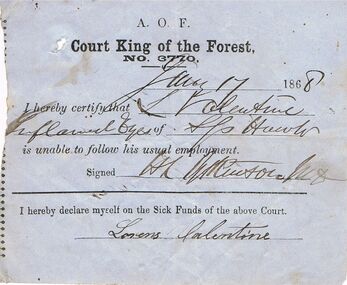 A. O. F.
Court King of the Forest,
NO. 3770.
Jany 17 1868
I hereby certify that L Valentine
Inflamed Eyes of
is unable to follow his usual employment.
Signed
I hereby declare myself on the Sick Funds of the above Court.
Lorens Valentine